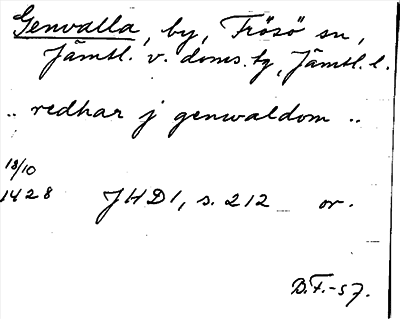 Genvalla, by, Frösö sn,
Jämtl. v. doms. tg, Jämtl. l.
.. redhar j genwaldom ..
13/10
1428 JHD 1, s. 212 or.
B.F.-57.